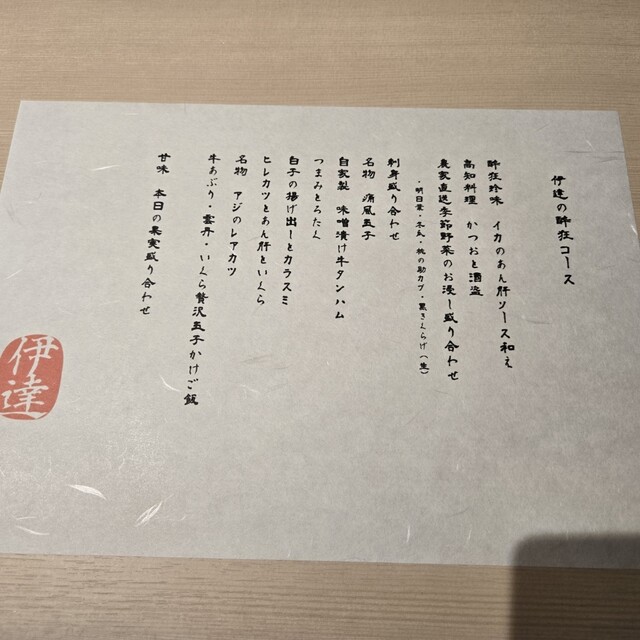 伊達の酔狂コース
酔狂珍味 イカのあん肝ソース和え
高知料理 かつおと酒盗
農家直送季節野菜のお浸し盛り合わせ
・明日葉・冬瓜・桃の助カブ・黒きくらげ(生)
刺身盛り合わせ
名物 痛風玉子
自家製 味噌漬け牛タンハム
つまみとろたく
白子の揚げ出しとカラスミ
ヒレカツとあん肝といくら
名物 アジのレアカツ
牛あぶり・雲丹・いくら贅沢玉子かけご飯
甘味 本日の果実盛り合わせ
伊達